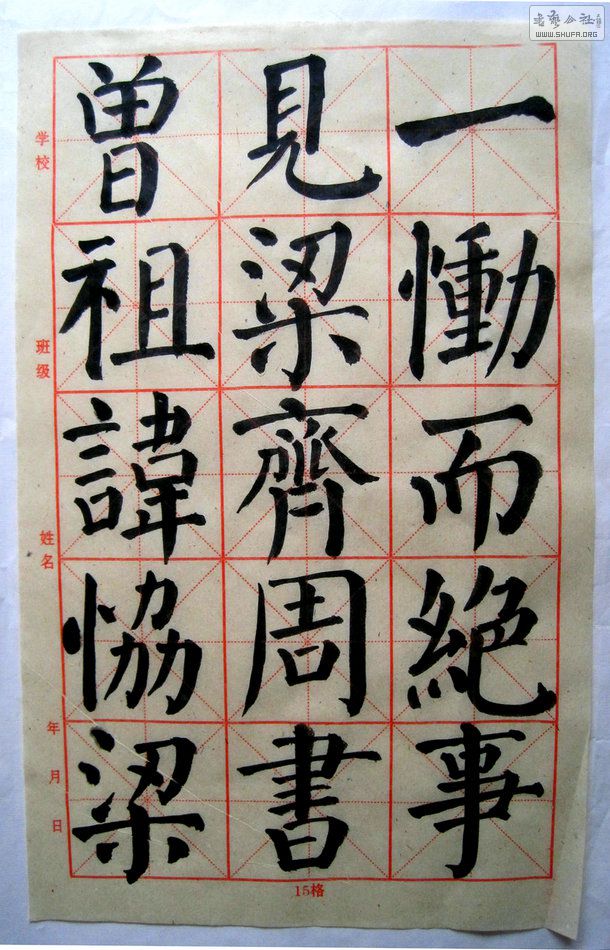 一慟而絶事
見梁齊周書
曾祖諱恊梁
学校
班级
姓名
年月日
15格
书艺公社
WWW.SHUFA.ORG